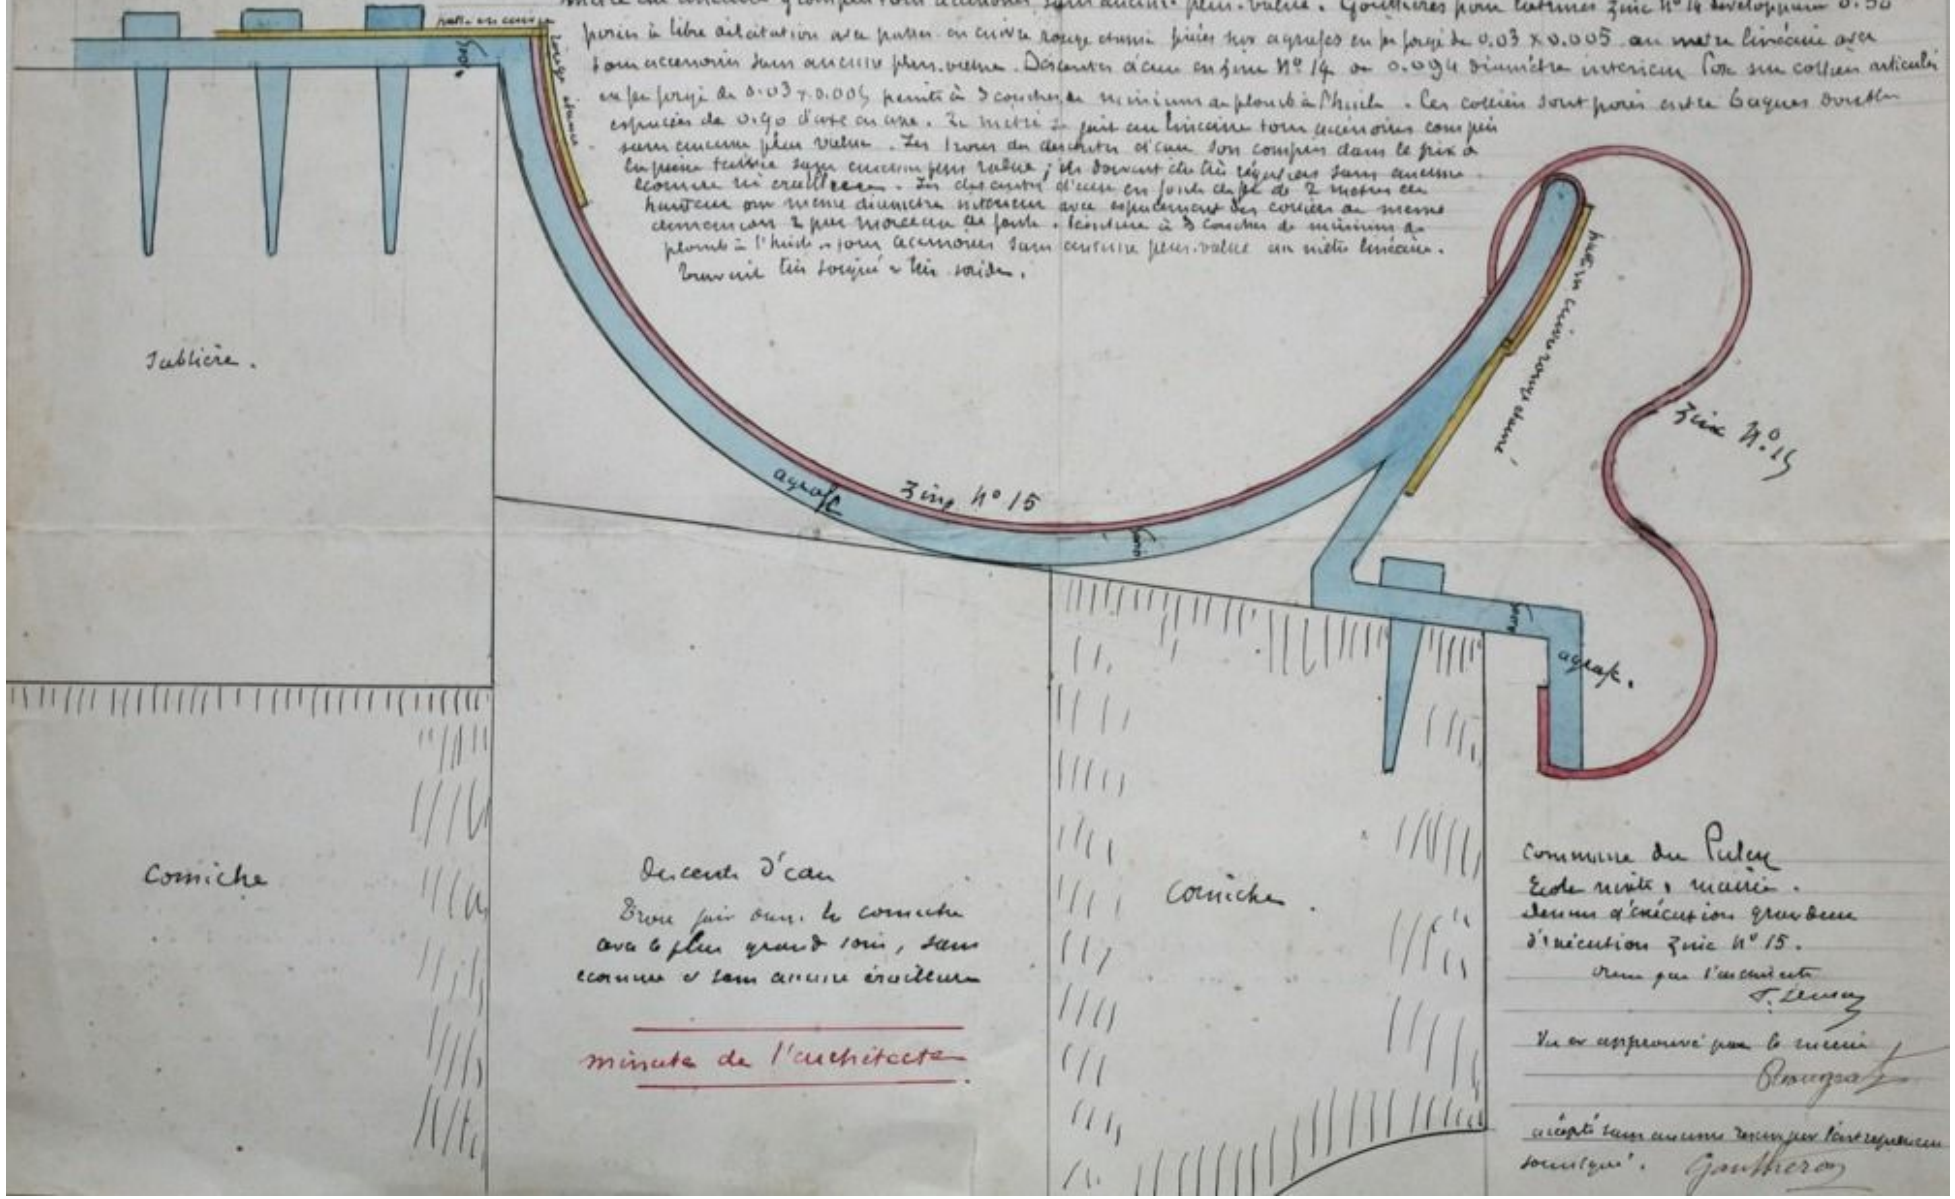 mètre au linéaire y compris tous accessoires sans aucune plus-value. Gouttières pour latrines zinc Nº 14 développant 0.50
posées à libre dilatation avec pattes en cuivre rouge étamé fixées sur agrafes en fer forgé de 0.03 x 0.005 au mètre linéaire avec
tous accessoires sans aucune plus-value. Descentes d'eau en zinc Nº 14 de 0.094 diamètre intérieur sur colliers articulés
en fer forgé de 0.03 x 0.005 peints à 3 couches de minium de plomb à l'huile. Ces colliers sont posés entre bagues
espacées de 0.90 d'axe en axe. Le métré se fait au linéaire tous accessoires compris
sans aucune plus value. Les trous des descentes d'eau sont compris dans le prix de
la pierre taillée sans aucune plus value ; ils doivent être très réguliers sans aucune
écornure ni éraillure. Les descentes d'eau en fonte de 2 mètres de
hauteur ont même diamètre intérieur avec espacement des colliers de même
dimension 2 par morceau de fonte. Peinture à 3 couches de minium de
plomb à l'huile, tous accessoires sans aucune plus-value au mètre linéaire.
Travail très soigné & très solide.
patte en cuivre
rouge étamé
0.005
Sablière.
patte en cuivre rouge étamé
Zinc Nº 15
agrafe
Zinc Nº 15
agrafe.
Corniche
Descente d'eau
Trou fait dans la corniche
avec le plus grand soin, sans
écornure & sans aucune éraillure
minute de l'architecte
Corniche.
Commune du Puley
Ecole mixte & mairie.
dessin d'exécution grandeur
d'exécution zinc Nº 15.
dressé par l'architecte
Vu et approuvé par le maire
accepté sans aucune réserve par l'entrepreneur
soussigné.
Gautheron